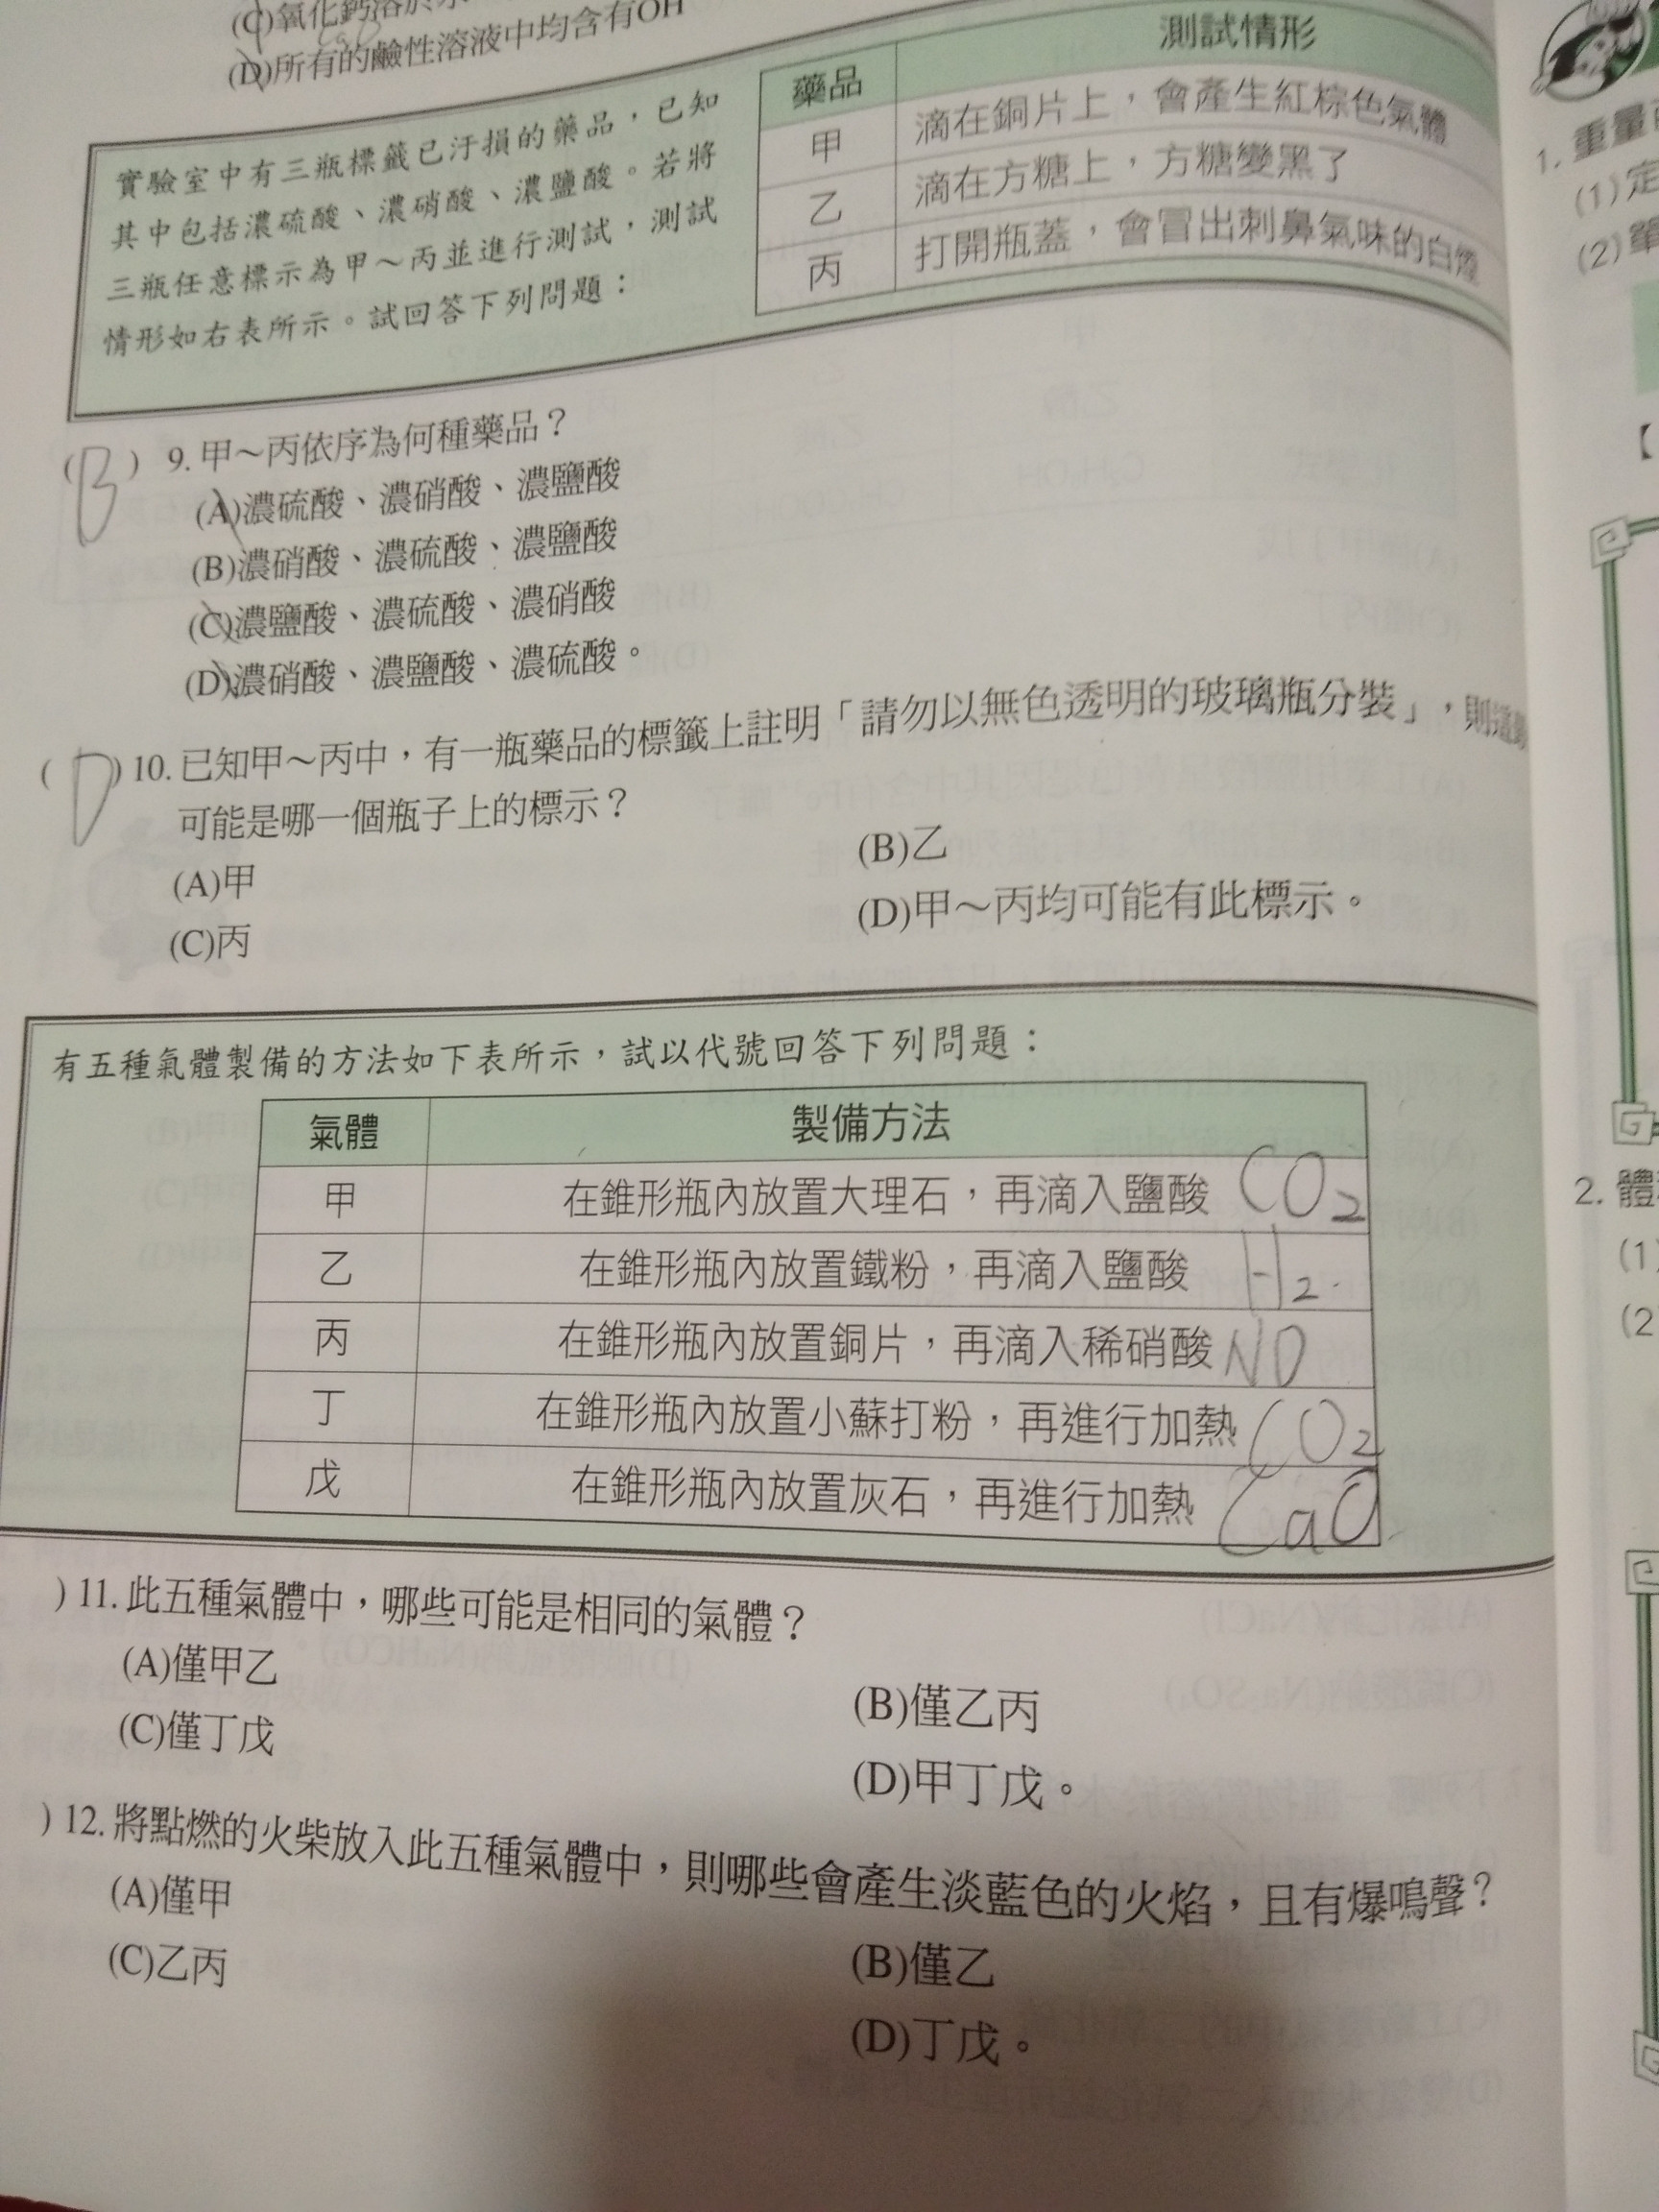 (C)氧化鈣溶於
CaO
(D)所有的鹼性溶液中均含有OH
實驗室中有三瓶標籤已汙損的藥品，已知
其中包括濃硫酸、濃硝酸、濃鹽酸。若將
三瓶任意標示為甲～丙並進行測試，測試
情形如右表所示。試回答下列問題：
藥品 測試情形
甲 滴在銅片上，會產生紅棕色氣體
乙 滴在方糖上，方糖變黑了
丙 打開瓶蓋，會冒出刺鼻氣味的白煙
(B) 9. 甲～丙依序為何種藥品？
(A)濃硫酸、濃硝酸、濃鹽酸
(B)濃硝酸、濃硫酸、濃鹽酸
(C)濃鹽酸、濃硫酸、濃硝酸
(D)濃硝酸、濃鹽酸、濃硫酸。
(D)10. 已知甲～丙中，有一瓶藥品的標籤上註明「請勿以無色透明的玻璃瓶分裝」，則這
可能是哪一個瓶子上的標示？
(A)甲 (B)乙
(C)丙 (D)甲～丙均可能有此標示。
有五種氣體製備的方法如下表所示，試以代號回答下列問題：
氣體 製備方法
甲 在錐形瓶內放置大理石，再滴入鹽酸 CO2
乙 在錐形瓶內放置鐵粉，再滴入鹽酸 H2
丙 在錐形瓶內放置銅片，再滴入稀硝酸 NO
丁 在錐形瓶內放置小蘇打粉，再進行加熱 CO2
戊 在錐形瓶內放置灰石，再進行加熱 CaO
)11. 此五種氣體中，哪些可能是相同的氣體？
(A)僅甲乙 (B)僅乙丙
(C)僅丁戊 (D)甲丁戊。
)12. 將點燃的火柴放入此五種氣體中，則哪些會產生淡藍色的火焰，且有爆鳴聲？
(A)僅甲 (B)僅乙
(C)乙丙 (D)丁戊。
1. 重量
(1)定
(2)單
【
2. 體
(1)
(2